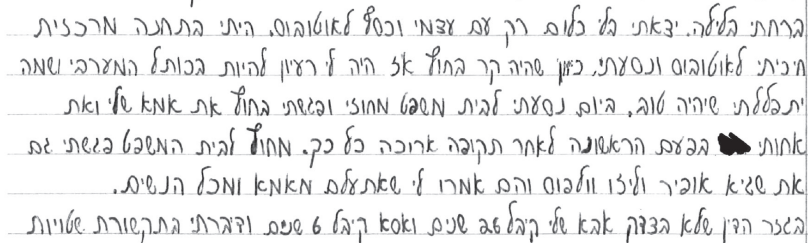 ברחתי בלילה. יצאתי בלי כלום רק עם עצמי וכסף לאוטובוס. הייתי בתחנה מרכזית
חיכיתי לאוטובוס ונסעתי. כיוון שהיה קר בחוץ אז היה לי רעיון להיות בכותל המערבי ושמה
יתפללתי שיהיה טוב. ביום נסעתי לבית משפט מחוזי ופגשתי בחוץ את אמא שלי ואת
אחותי בפעם הראשונה לאחר תקופה ארוכה כל כך. מחוץ לבית המשפט פגשתי גם
את שגיא אופיר וליזו וולפוס והם אמרו לי שאתעלם מאמא ומכל הנשים.
בגזר הדין שלא בצדק אבא שלי קיבל 26 שנים ואסא קיבל 6 שנים ודיברתי בתקשורת שטויות